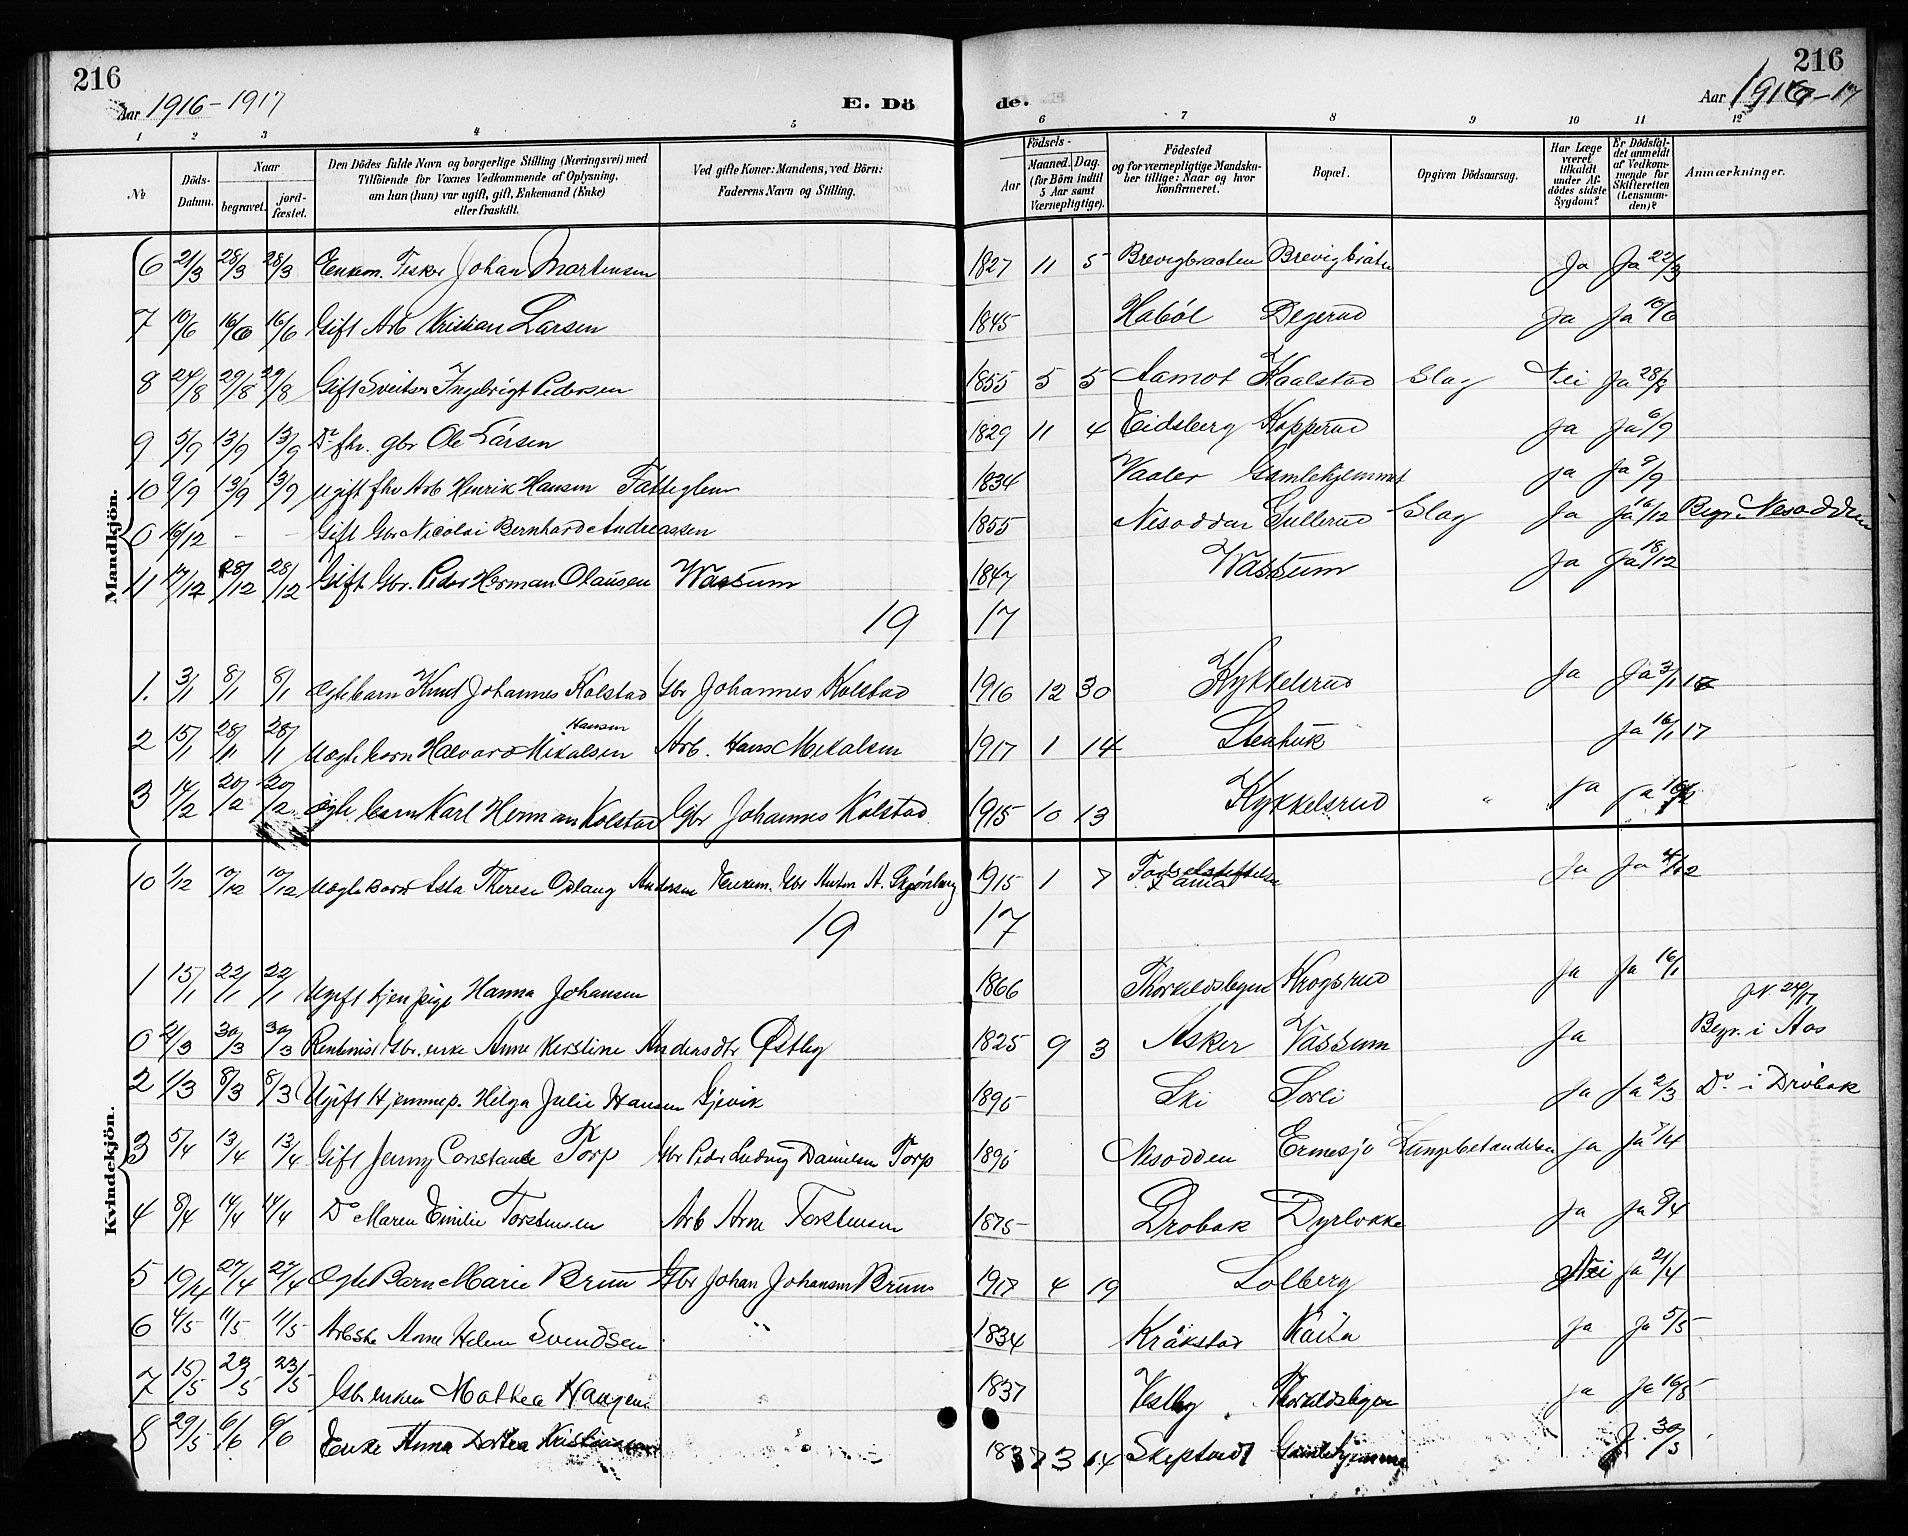 216
Aar 1916-1917
E. Dö
de.
216
Aar 1916-17
1 2 3 4 5 6 7 8 9 10 11 12
№
Döds-Datum.
Naar
begravet.
jordfæstet.
Den Dödes fulde Navn og borgerlige Stilling (Næringsvei) med
Tilföiende for Voxnes Vedkommende af Oplysning,
om han (hun) var ugift, gift, Enkemand (Enke)
eller fraskilt.
Ved gifte Koner: Mandens, ved Börn:
Faderens Navn og Stilling.
Födsels-
Aar
Maaned. Dag.
(for Börn indtil
5 Aar samt
Værnepligtige).
Födested
og for værnepligtige Mandskaber tillige: Naar og hvor konfirmeret.
Bopæl.
Opgiven Dödsaarsag.
Har Læge været tilkaldt under Afdödes sidste Sygdom?
Er Dödsfaldet anmeldt af Vedkommende for Skifteretten (Lensmanden)?
Anmærkninger.
Mandkjön.
6 21/3 28/3 28/3 Enkem. Fisker Johan Martensen 1827 11 5 Brevigbraaten Brevigbråten Ja Ja 22/3
7 10/6 16/6 16/6 Gift Arb Kristian Larsen 1845 Haböl Degerud Ja Ja 10/6
8 24/8 29/8 29/8 Gift Sveitser Ingebrigt Pedersen 1855 5 5 Aamot Kaalstad Slag Nei Ja 28/8
9 5/9 13/9 13/9 Do fhv. gbr Ole Larsen 1829 11 4 Eidsberg Kopperud Ja Ja 6/9
10 9/9 13/9 13/9 Ugift fhv Arb Henrik Hansen Fattiglem 1834 Vaaler Gamlehjemmet ja Ja 9/9
0 16/12 - - Gift Gbr Nicolai Bernhard Andreassen 1855 Nesodden Gullerud Slag Ja Ja 16/12 Begr. Nesodden
11 17/12 28/12 28/12 Gift Gbr. Peder Herman Olausen Wassum 1847 Wassum Ja Ja 18/12
19 17
1. 3/1 8/1 8/1 Ægtebarn Knut Johannes Kolstad Gbr Johannes Kolstad 1916 12 30 Kykkelsrud Ja Ja 3/1 17
Hansen
2 15/1 28/1 28/1 Uægte barn Halvard Mikalsen Arb. Hans Mikalsen 1917 1 14 Stenhuk Ja 16/1 17
3 14/2 20/2 20/2 Ægte barn Karl Herman Kolstad Gbr Johannes Kolstad 1915 10 13 Kykkelsrud " Ja Ja 16/2
Kvindekjön.
10 1/12 10/12 10/12 Uægte barn Asta Therese Oslaug Andersen Enkem. Gbr Anton A. 1915 1 7 Födselsstiftelsen Ja Ja 4/12
19 17
1 15/1 22/1 22/1 Ugift tjen.pige Hanna Johansen 1866 Thorkildsbyen Krogsrud Ja Ja 16/1
0 2/3 30/3 30/3 Rentenist Gbr. enke Anne Kerstine Andersdtr Østby 1825 9 3 Asker Vassum Ja Begr. i Aas
2 1/3 8/3 8/3 Ugift Hjemmep. Helga Julie Hansen Gjevik 1895 Ski Sorli Ja Ja 2/3 Do i Dröbak
3 5/4 13/4 13/4 Gift Jenny Constance Torp Gbr Peder Ludvig Danielsen Torp 1890 Nesodden Ermesjø Lungebetændelse Ja Ja 7/4
4 8/4 14/4 14/4 Do Maren Emilie Torstensen Arb Arne Torstensen 1875 Drobak Dyrlokke Ja Ja 9/4
5 19/4 27/4 27/4 Ægte Barn Marie Brun Gbr Johan Johansen Bruun 1917 4 19 Solberg Nei Ja 21/4
6 4/5 11/5 11/5 Anne Helene Svendsen " 1834 Kråkstad Kaita Ja Ja 5/5
7 15/5 23/5 23/5 Gbr enken Mathea Haugen 1837 Vestby Thorkildsbyen ja Ja 16/5
8 29/5 6/6 6/6 Enke Anna Dortea Kristiansen 3 14 Skiptvedt Gamlehjemmet J. 30/5